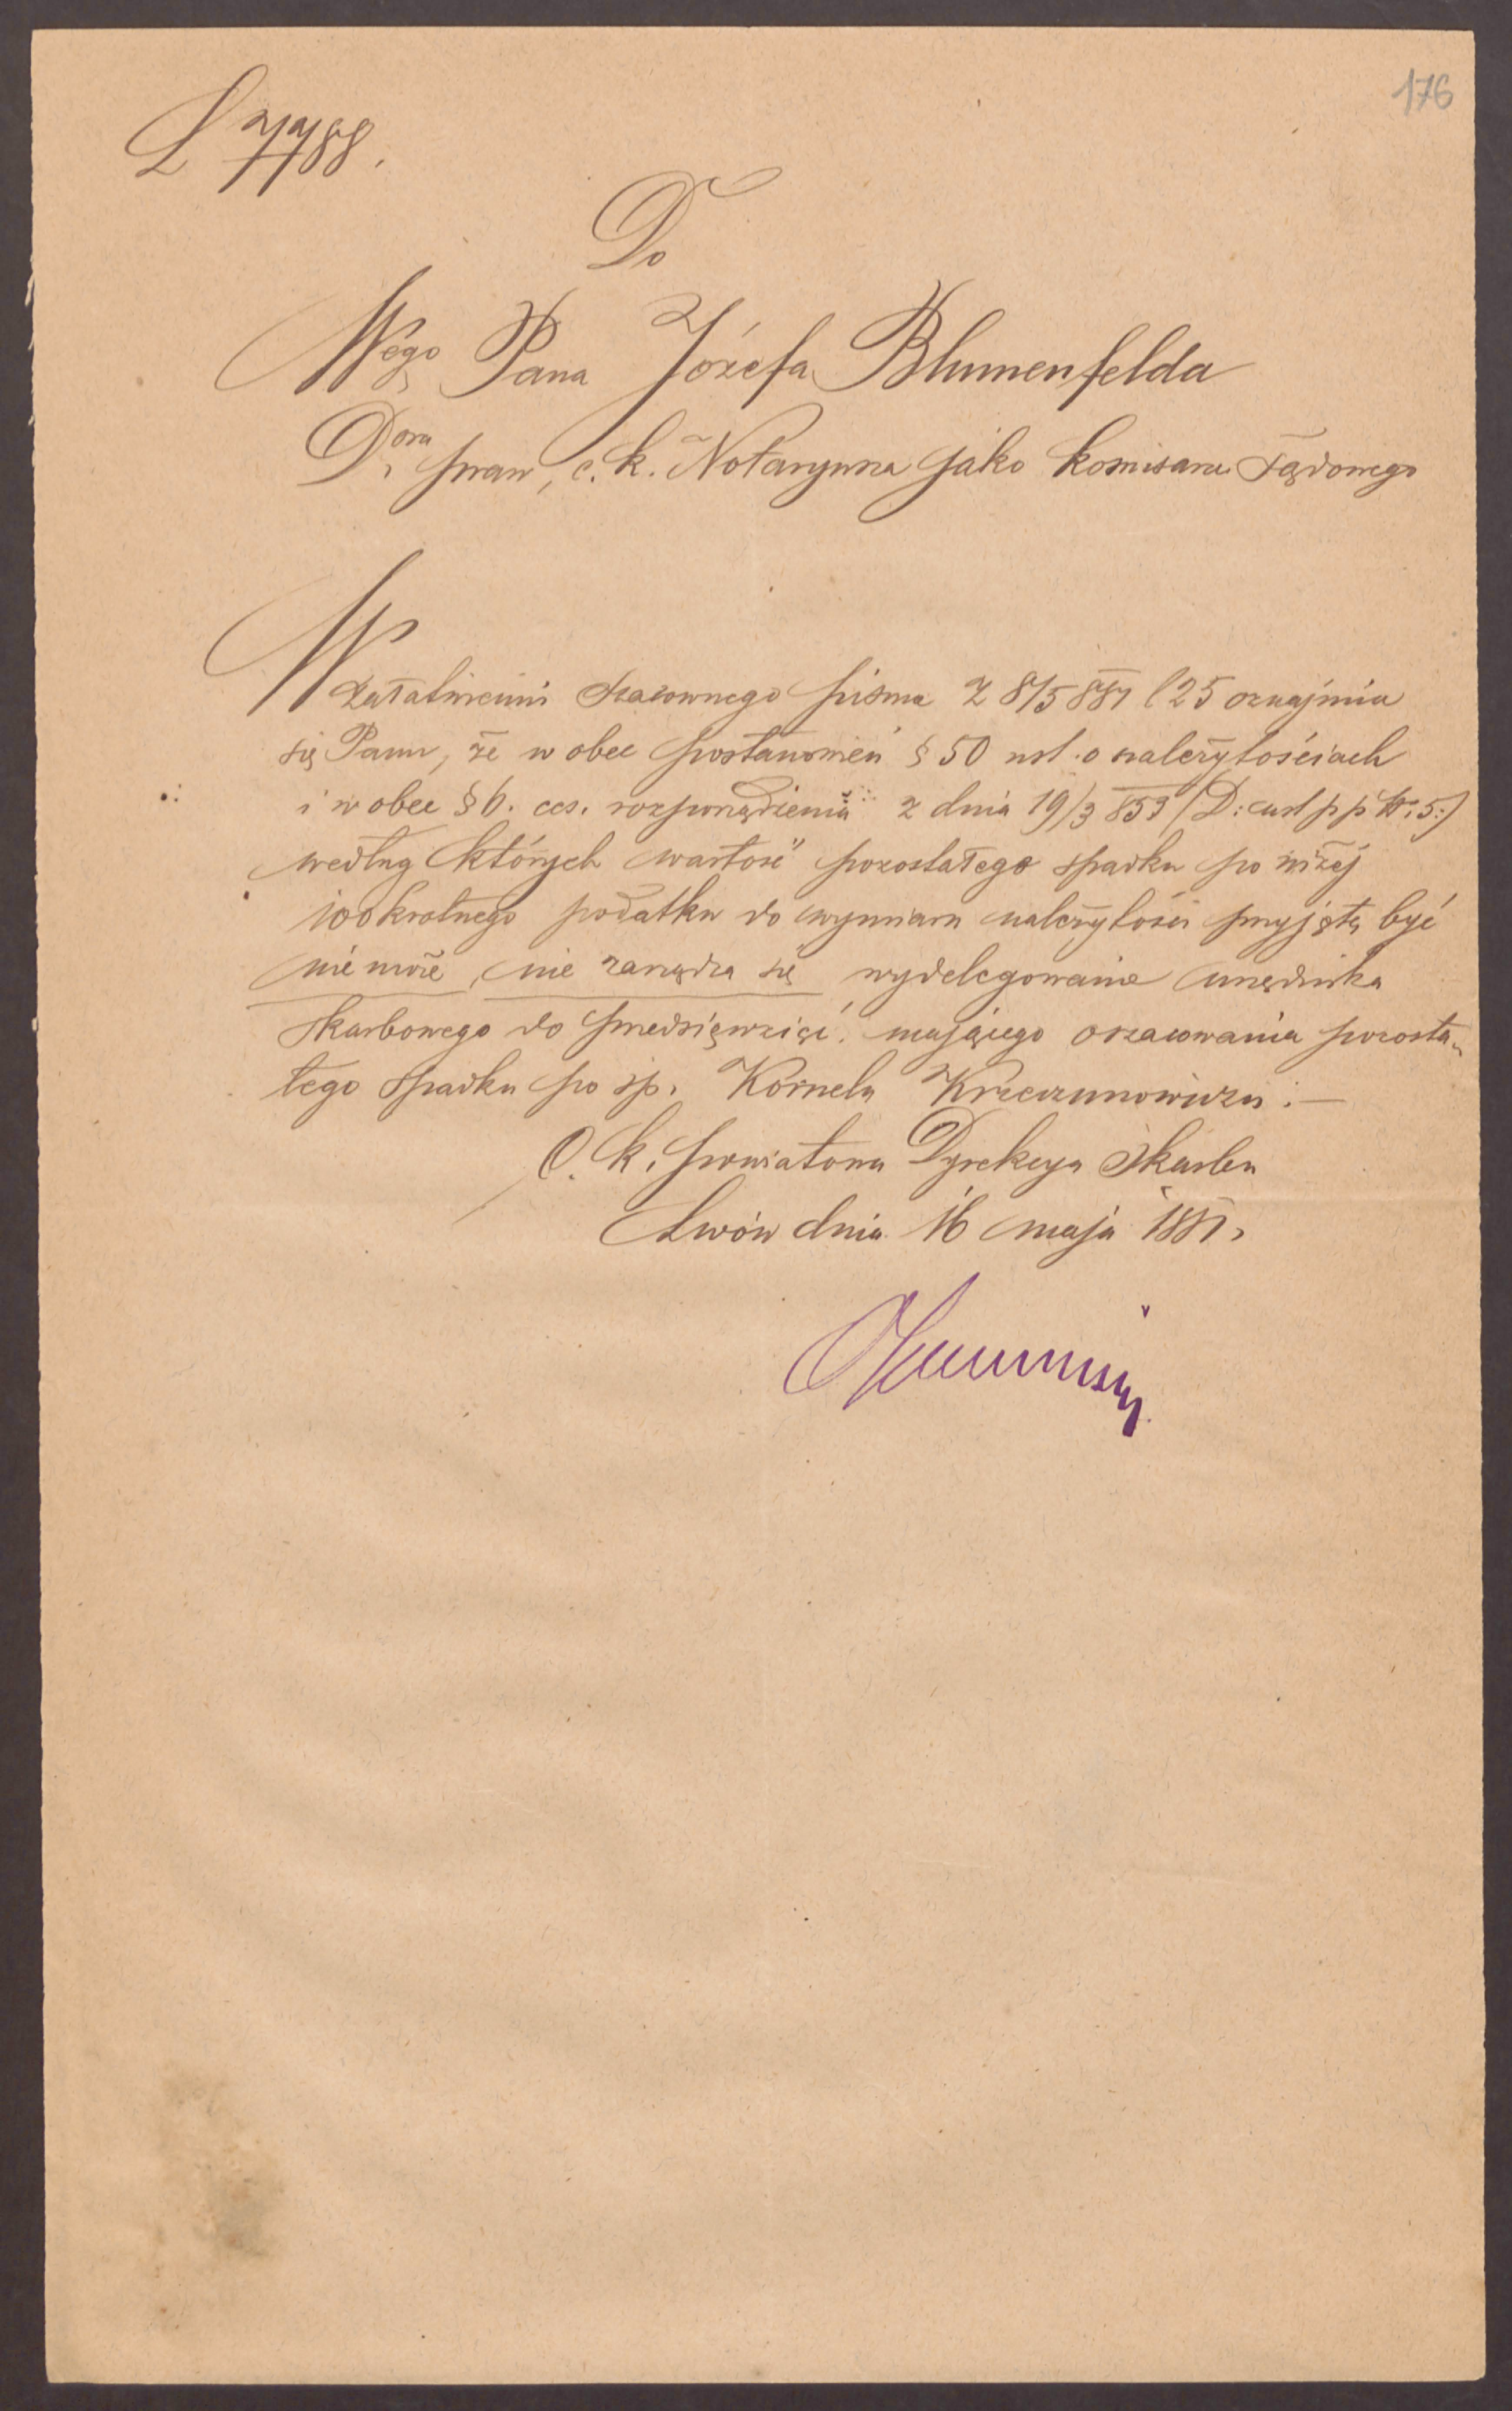 176
L 7788.
Do
Wgo Pana Józefa Blumenfelda
Dora praw, c. k. Notaryusza jako komisarza sądowego
W
załatwieniu szacownego pisma z 8/5 881 l 25 oznajmia
się Panu, że w obec postanowień § 50 ust. o należytościach
i w obec § 6. ces. rozporządzenia z dnia 19/3 853 (D: ust p p Nr. 5:)
według których wartość pozostałego spadku po niżej
100 krotnego podatku do wymiaru należytości przyjętą być
nie może, nie zarządza się wydelegowanie urzędnika
skarbowego do przedsięwzięć. mającego oszacowania pozosta-
łego spadku po śp. Kornelu Krzeczunowiczu.—
C. k. powiatowa Dyrekcya Skarbu
Lwów dnia 16 maja 1881.